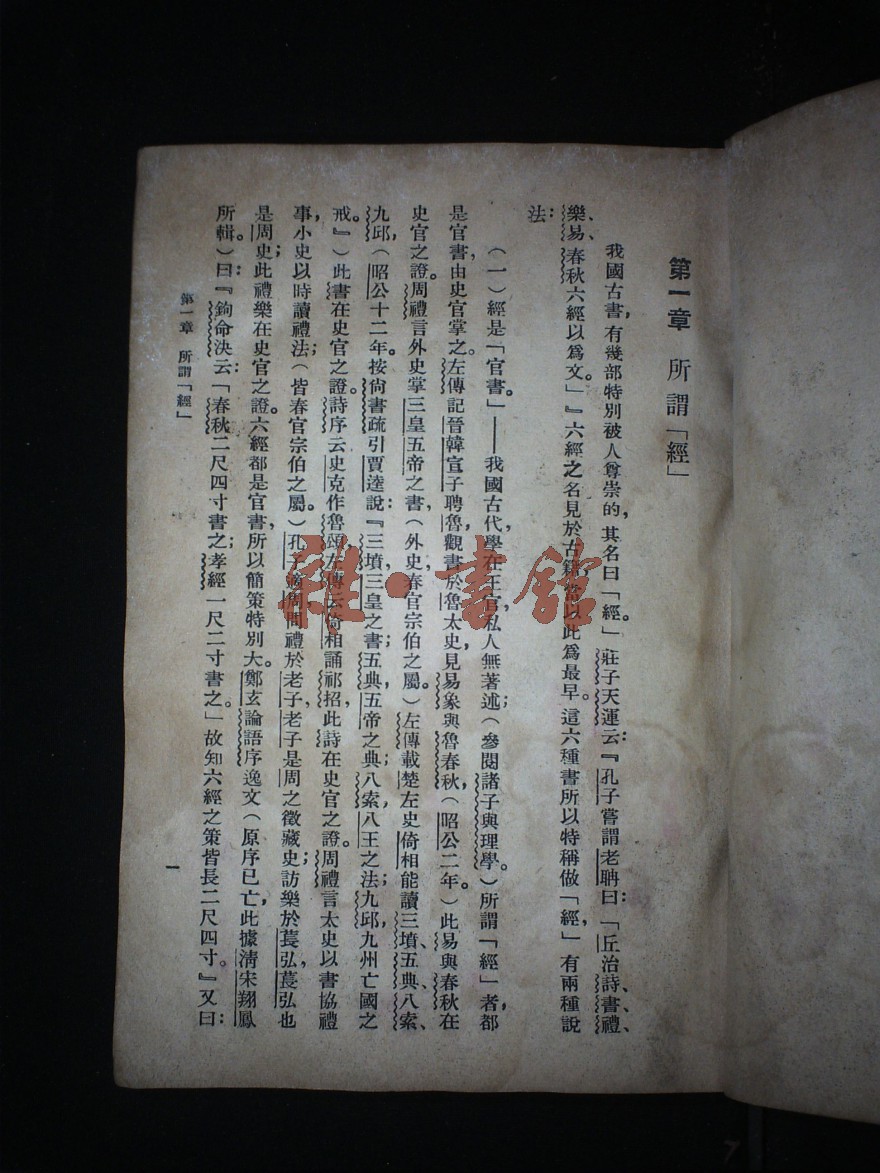 第一章　所謂「經」
我國古書，有幾部特別被人尊崇的，其名曰「經。」莊子天運云：『孔子嘗謂老聃曰：「丘治詩、書、禮、
樂、易、春秋六經以爲文。」』六經之名見於古籍當以此爲最早。這六種書所以特稱做「經，」有兩種說
法：
（一）經是「官書。」——我國古代，學在王官，私人無著述；（參閱諸子與理學。）所謂「經」者，都
是官書，由史官掌之。左傳記晉韓宣子聘魯，觀書於魯太史，見易象與魯春秋，（昭公二年。）此易與春秋在
史官之證。周禮言外史掌三皇五帝之書，（外史，春官宗伯之屬。）左傳載楚左史倚相能讀三墳、五典、八索、
九邱，（昭公十二年。按尙書疏引賈逵說：『三墳，三皇之書；五典，五帝之典；八索，八王之法；九邱，九州亡國之
戒。』）此書在史官之證。詩序云史克作魯頌，左傳云倚相誦祁招，此詩在史官之證。周禮言太史以書協禮
事，小史以時讀禮法；（皆春官宗伯之屬。）孔子適周，問禮於老子，老子是周之徵藏史；訪樂於萇弘，萇弘也
是周史；此禮樂在史官之證。六經都是官書，所以簡策特別大。鄭玄論語序逸文（原序已亡，此據清宋翔鳳
所輯。）曰：『鉤命決云：「春秋二尺四寸書之；孝經一尺二寸書之。」故知六經之策皆長二尺四寸。』又曰：
第一章　所謂「經」
一
雜·書館